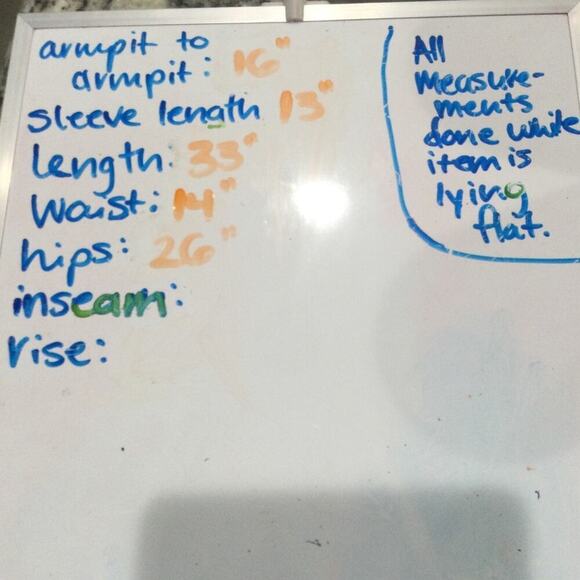 armpit to
armpit: 16"
sleeve length 13"
length: 33"
waist: 14"
hips: 26"
inseam:
rise:
All
measure-
ments
done while
item is
lying
flat.